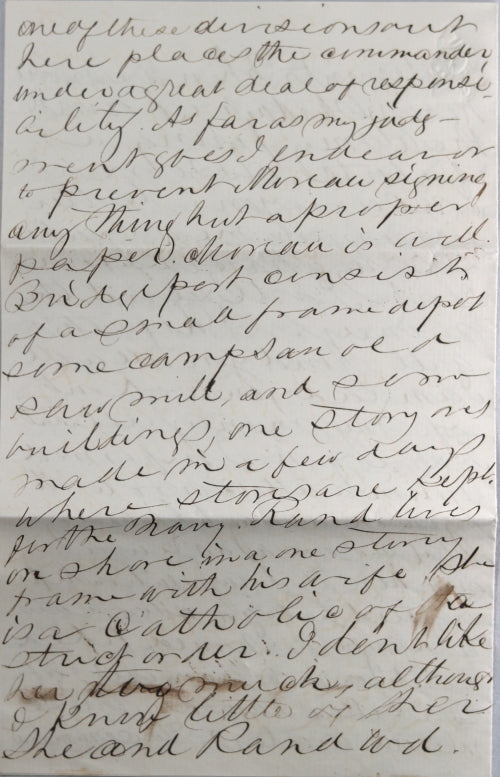 one of these divisions out
here places the commander
under a great deal of responsi-
bility. As far as my judg-
ment goes I endeavor
to prevent Moreau signing
any thing but a proper
paper. Moreau is well.
Bridgeport consists
of a small frame depot
some camps an old
saw mill, and some
buildings, one story
made in a few days
where stores are kept
for the Navy. Rand lives
on shore in a one story
frame with his wife she
is a Catholic of
strict order. I dont like
her very much, although
I know little of her
She and Rand